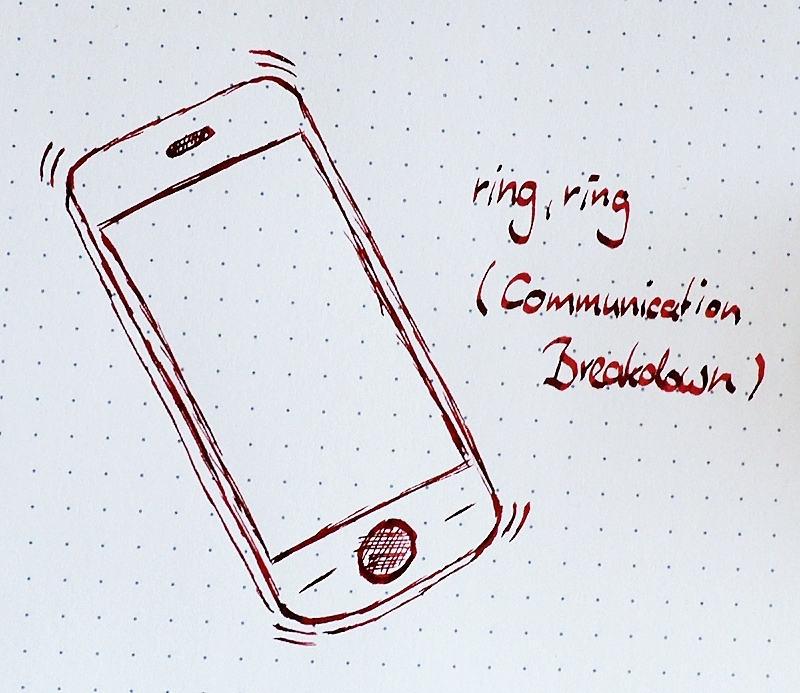 ring, ring
(Communication
Breakdown)